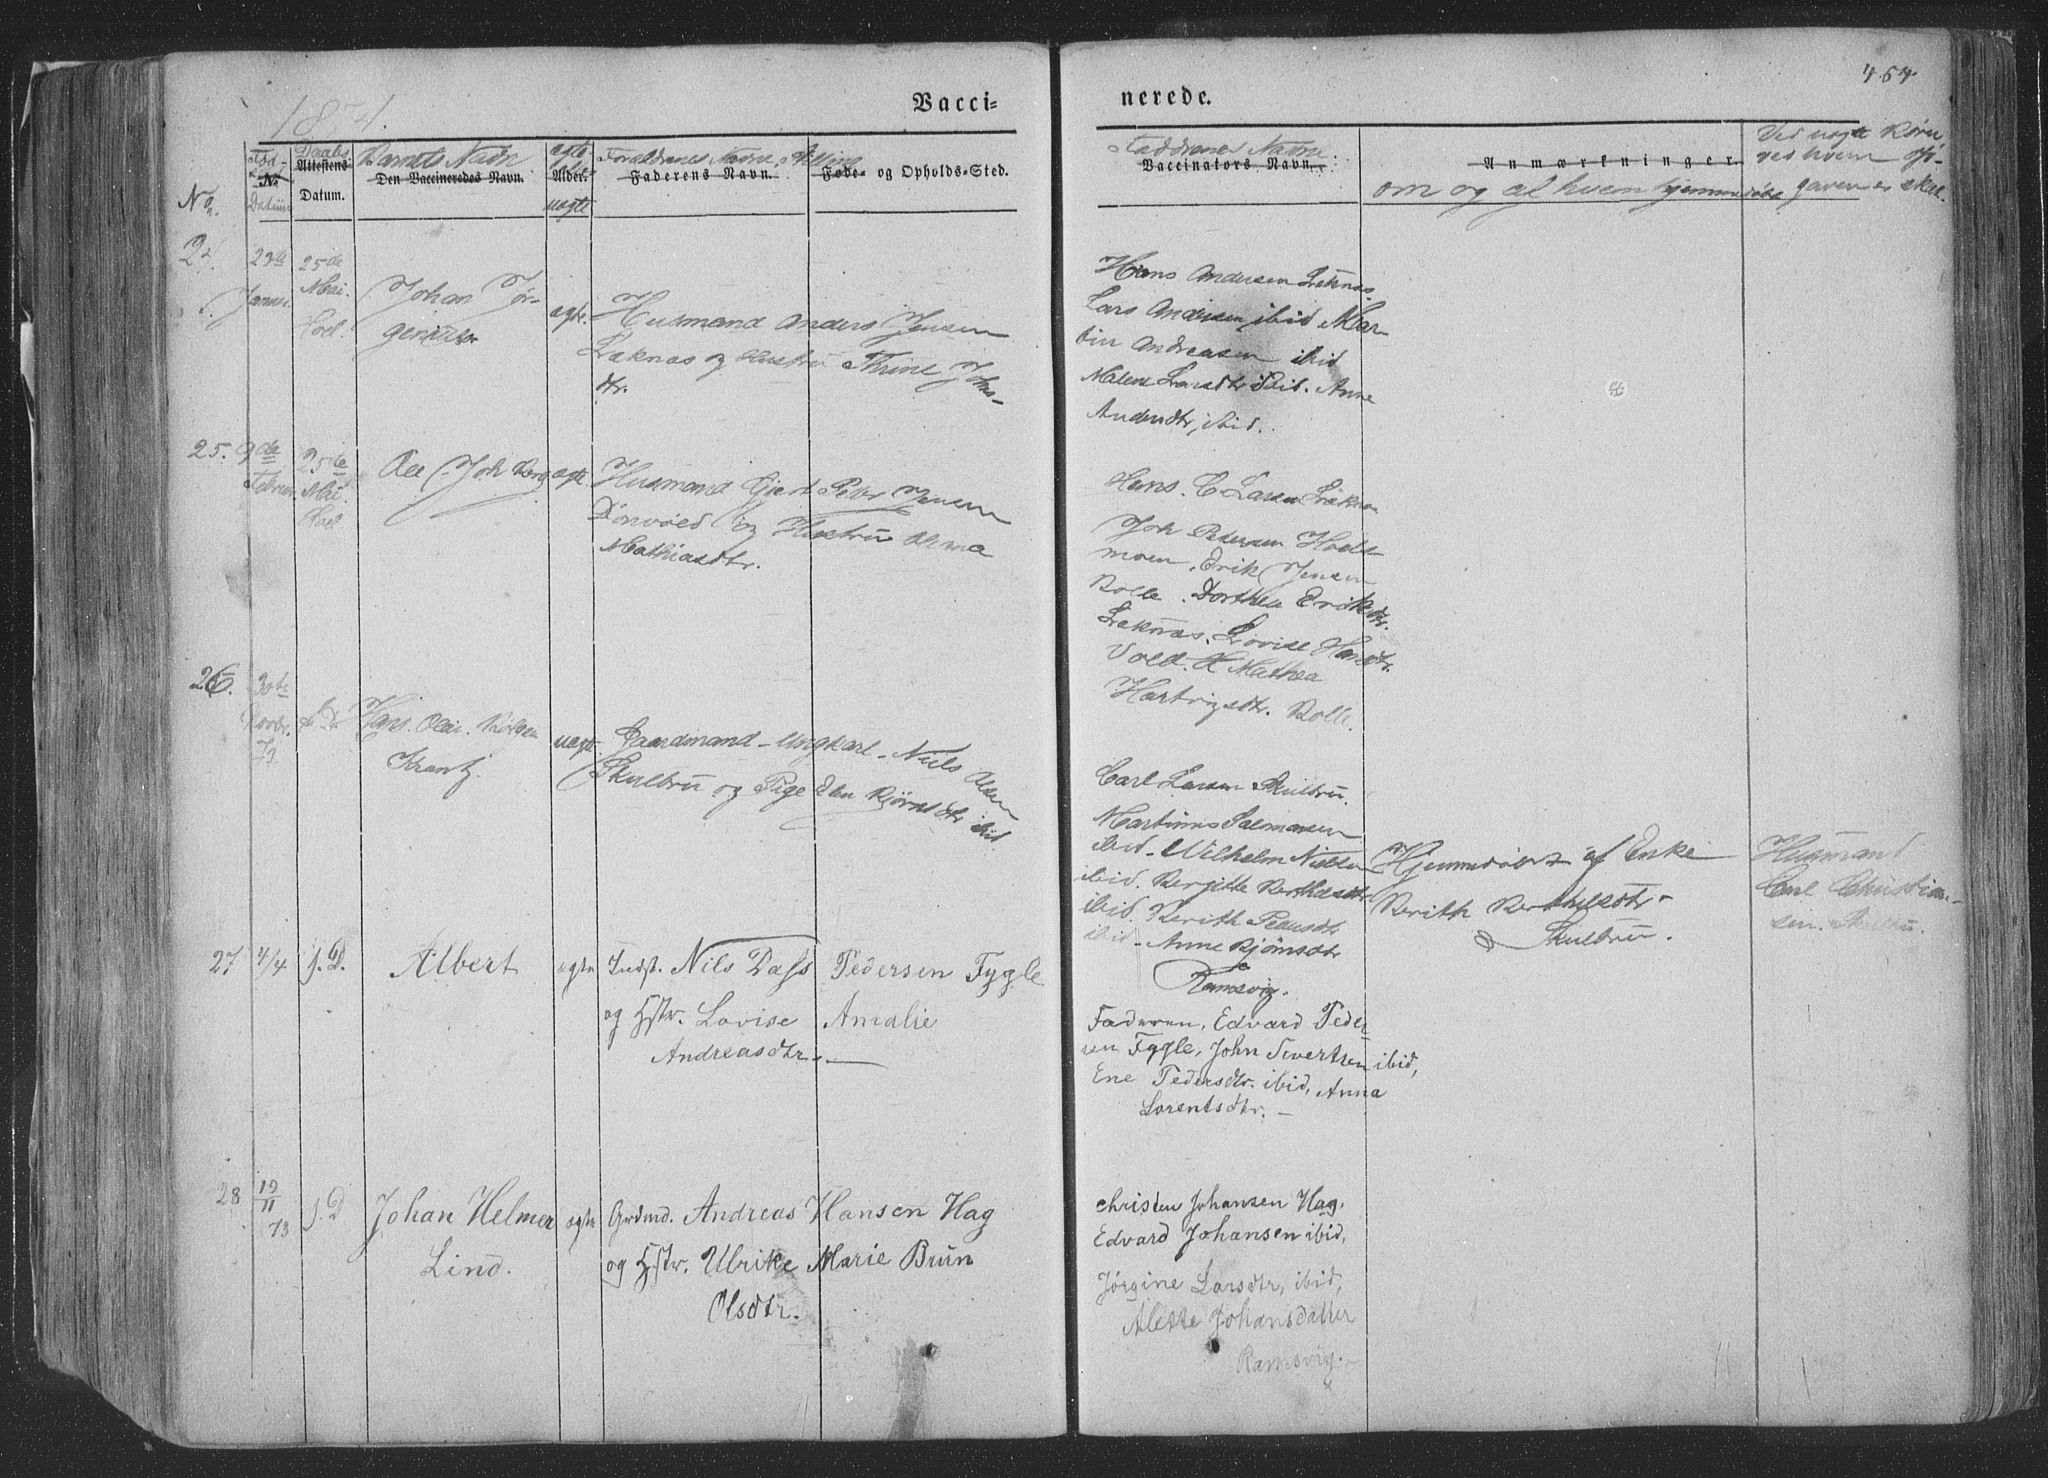 454
1874.
Vacci-
nerede.
Fød-
Datum
No
Daabs
Attestens
Datum.
Barnets Navn
Den Vaccineredes Navn.
ægte
Alder.
uægte
Forældrenes Navne, Stilling
Faderens Navn.
Føde- og Opholds-Sted.
Faddrenes Navne
Vaccinators Navn.
Anmærkninger.
om og af hvem hjemmedøbt
Ved uægte Børn
ved hvem Op-
gaven er skeet.
No.
24.
23de
Januar.
25de
Mai.
Hoel.
Johan Jør-
gen
ægte.
Husmand Anders Jensen
Læknæs og Hustru Trine Johns-
dtr.
Hans Andersen Leknæs.
Lars Andersen ibid Mar-
tin Andreasen ibid
Malene Larsdtr ibid. Anne
Andersdtr, ibid.
25.
9de
Februar
25de
Mai.
Hoel.
Ole Joh Berg
ægte
Husmand Gjert Peter Jensen
og Hustru Anna
Mathiasdtr.
Hans. C Larsen Læknæs
Joh Pedersen Hoels-
moen. Erik Jensen
Bolle. Dorthea Eriksdtr.
Læknæs. Lovise Hansdtr.
Vold. H Mathea
Hartvigsdtr. Bolle.
26.
30te
Novbr.
73
s. D
Hans. Olai.
Krantz.
uægte.
Gaardmand - Ungkarl - Niels Olsen
Skulbru og Pige Elen Bjørnsdtr ibid
Carl Larsen Skulbru.
Martinus Salmonsen
ibid - Wilhelm Nielsen
ibid. Bergitte Berthelsdtr
ibid. Berith Pedersdtr
ibid - Anne Bjørnsdtr
Ramsvig.
Hjemmedøbt af Enke
Berith Berthelsdtr -
Skulbru.
Husmand
Carl Christian-
sen. Skulbru.
27
4/4
s. D.
Albert
ægte
Indst. Nils Dass Pedersen Fygle
og Hstr. Lovise Amalie
Andreasdtr. -
Faderen, Edvard Peder-
sen Fygle, John Sivertsen ibid,
Ene Pedersdtr. ibid, Anna
Lorentsdtr. -
28
19/11
73
s. D
Johan Helmer
Lind.
ægte
Grdmd. Andreas Hansen Hag
og Hstr. Ulrike Marie Brun
Olsdtr.
Christen Johansen Hag.
Edvard Johansen ibid,
Jørgine Larsdtr, ibid,
Alette Johansdatter
Ramsvig. -